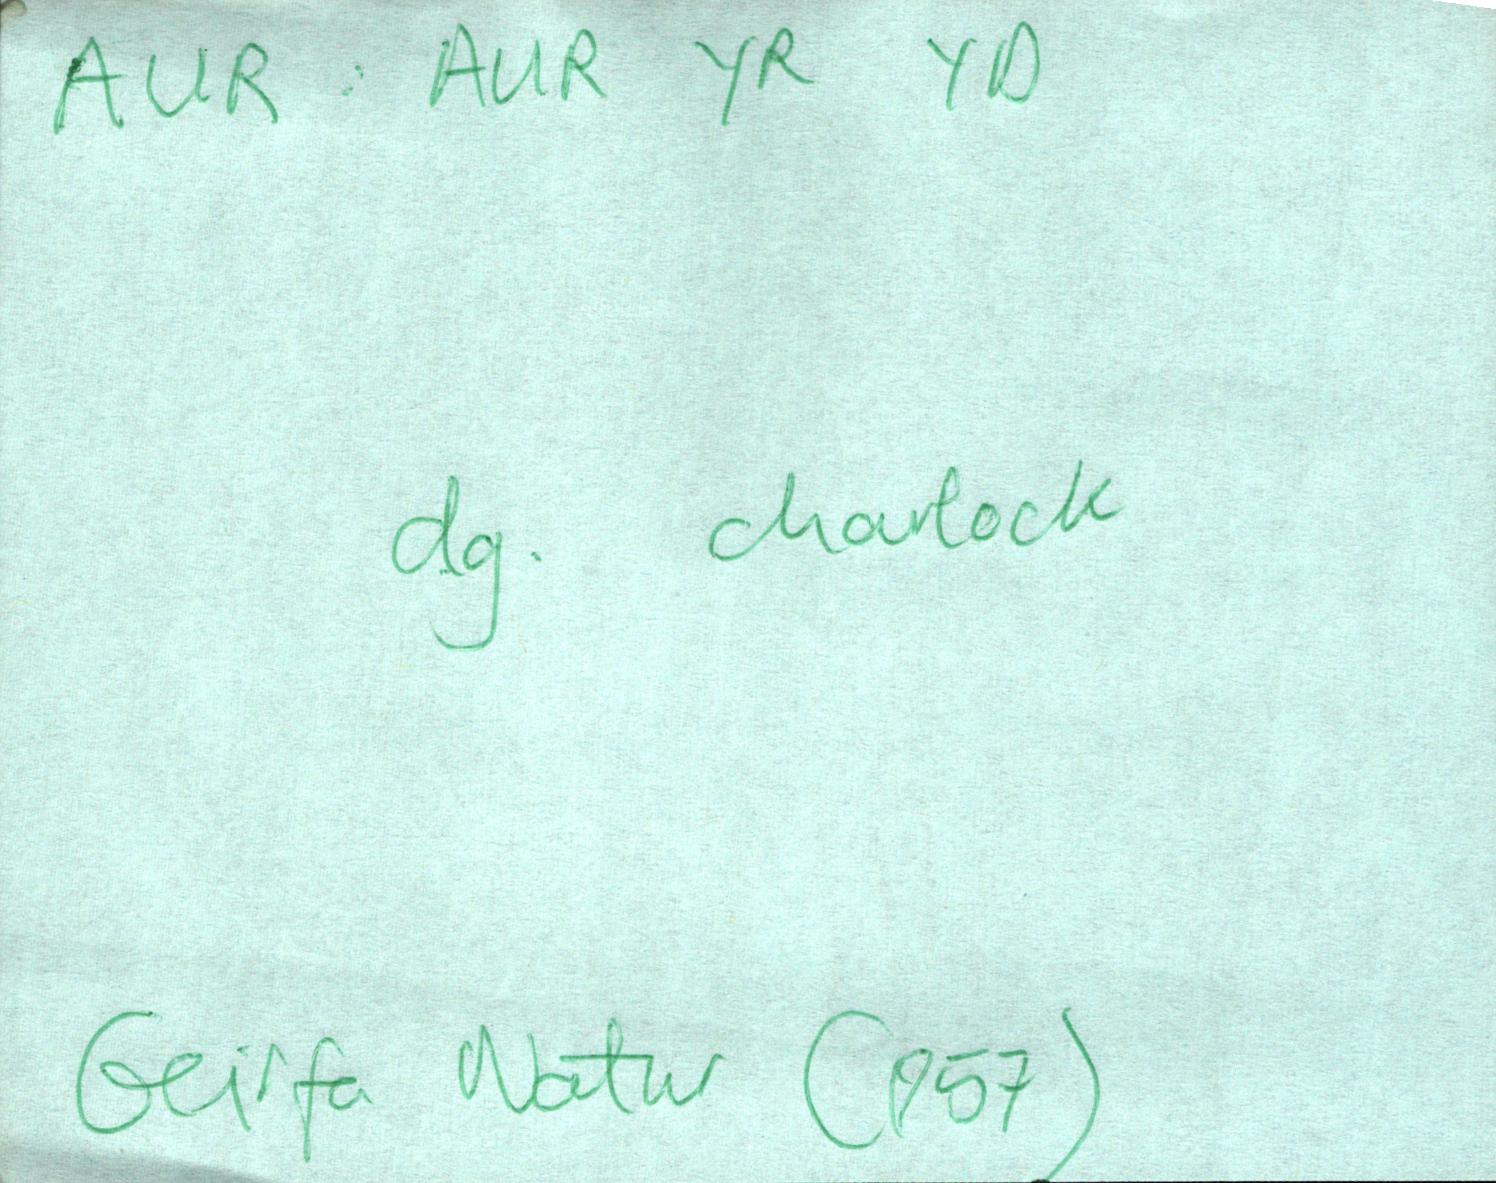 AUR : AUR YR YD
dg. charlock
Geirfa Natur (1957)